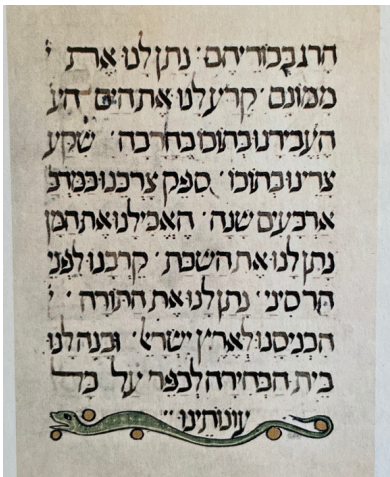 הרג בכוריהם׳ נתן לנו את
ממונם׳ קרע לנו את הים׳ הע
העבירנו בתוכו בחרבה׳ שקע
צרינו בתוכו׳ ספק צרכנו במדב
ארבעים שנה׳ האכילנו את המן
נתן לנו את השבת׳ קרבנו לפני
הר סיני׳ נתן לנו את התורה׳
הכניסנו לארץ ישראל׳ ובנה לנו
בית הבחירה לכפר על כל
עונותינו